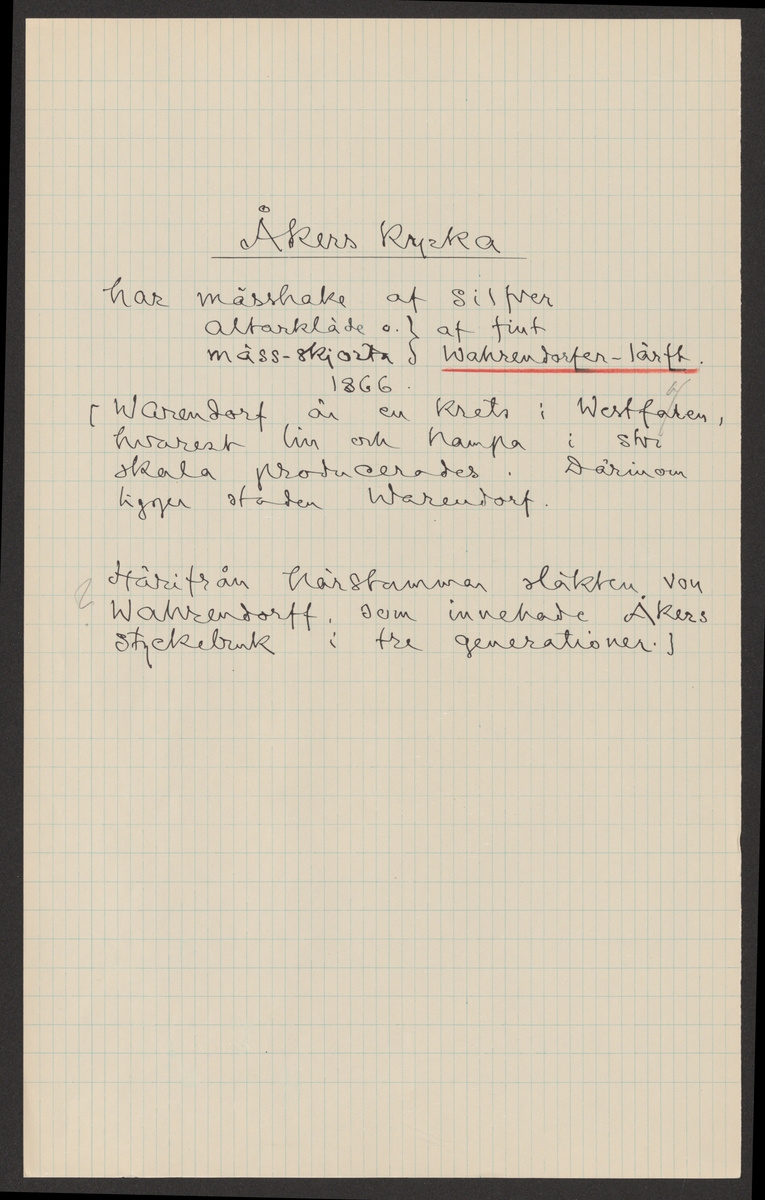 Åkers kyrka
har mässhake af silfver
altarkläde o. } af fint
mäss-skjorta } Wahrendorfer-lärft.
1866.
[ Warendorf är en krets i Westfalen,
hvarest lin och hampa i stor
skala producerades. Därinom
ligger staden Warendorf.
Härifrån härstammar släkten von
Wahrendorff, som innehade Åkers
styckebruk i tre generationer. ]